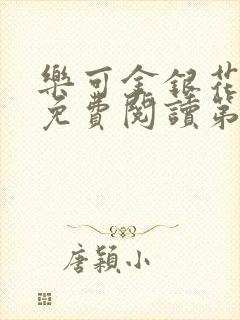 樂可金銀花
免費閱讀第
唐穎小